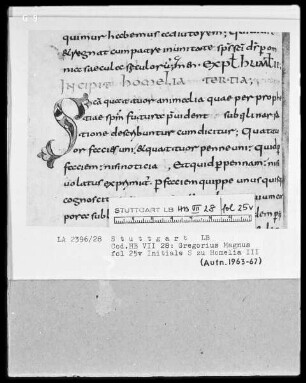 quimur habemus adiutorem; qui
& regnat cum patre in unitate sp̄s sc̄i dr̄ p omni
a saecula saeculorum. am̄en. Expł hom̄ł II.
Incipit homelia tertia;
Sca quattuor animalia quae per prop
tiae spm̄ futura praevident subtili nar
tione describuntur cum dicitur; Quattu
or facies uni, & quattuor pennae uni; quid
faciem, nisi noticia Et quid per pennam, nisi
volatus exprimitur. per faciem quippe unusqui
cognosci
porec subl
STUTTGART LB HB VII 28 fol 25v
LA 2396/28 Stuttgart LB
Cod.HB VII 28: Gregorius Magnus
fol 25v Initiale S zu Homelia III
(Aufn.1963-67)